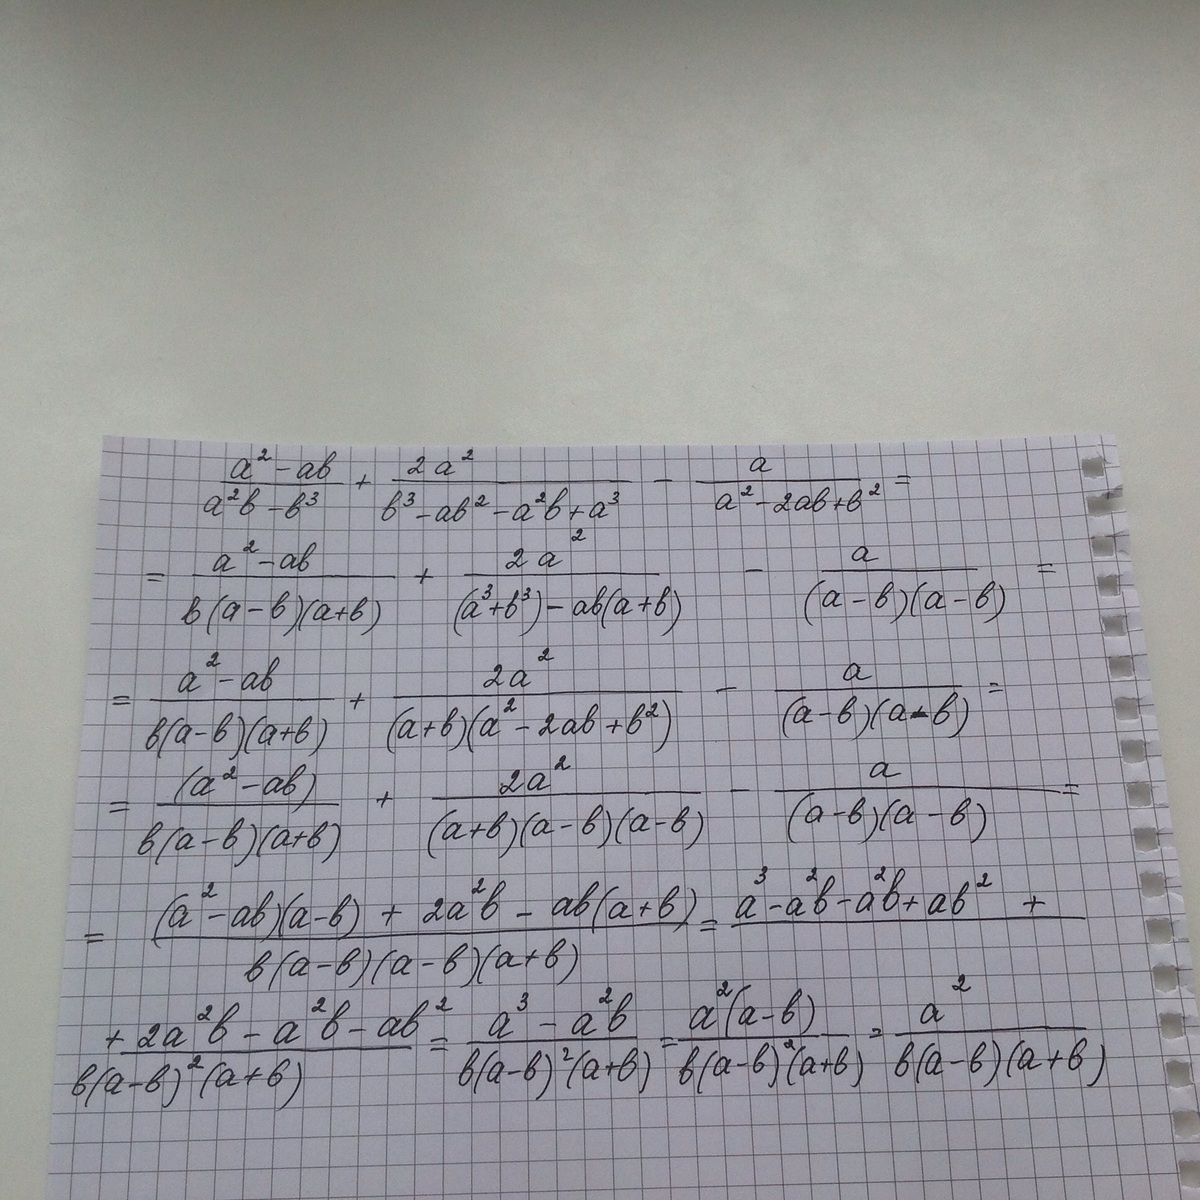 (a² - ab)/(a²b - b³) + 2a²/(b³ - ab² - a²b + a³) - a/(a² - 2ab + b²) =
= (a² - ab)/(b(a - b)(a + b)) + 2a²/((a³ + b³) - ab(a + b)) - a/((a - b)(a - b)) =
= (a² - ab)/(b(a - b)(a + b)) + 2a²/((a + b)(a² - 2ab + b²)) - a/((a - b)(a - b)) =
= (a² - ab)/(b(a - b)(a + b)) + 2a²/((a + b)(a - b)(a - b)) - a/((a - b)(a - b)) =
= ((a² - ab)(a - b) + 2a²b - ab(a + b))/(b(a - b)(a - b)(a + b)) = a³ - a²b - a²b + ab² +
+ 2a²b - a²b - ab²/(b(a - b)²(a + b)) = (a³ - a²b)/(b(a - b)²(a + b)) = a²(a - b)/(b(a - b)²(a + b)) = a²/(b(a - b)(a + b))